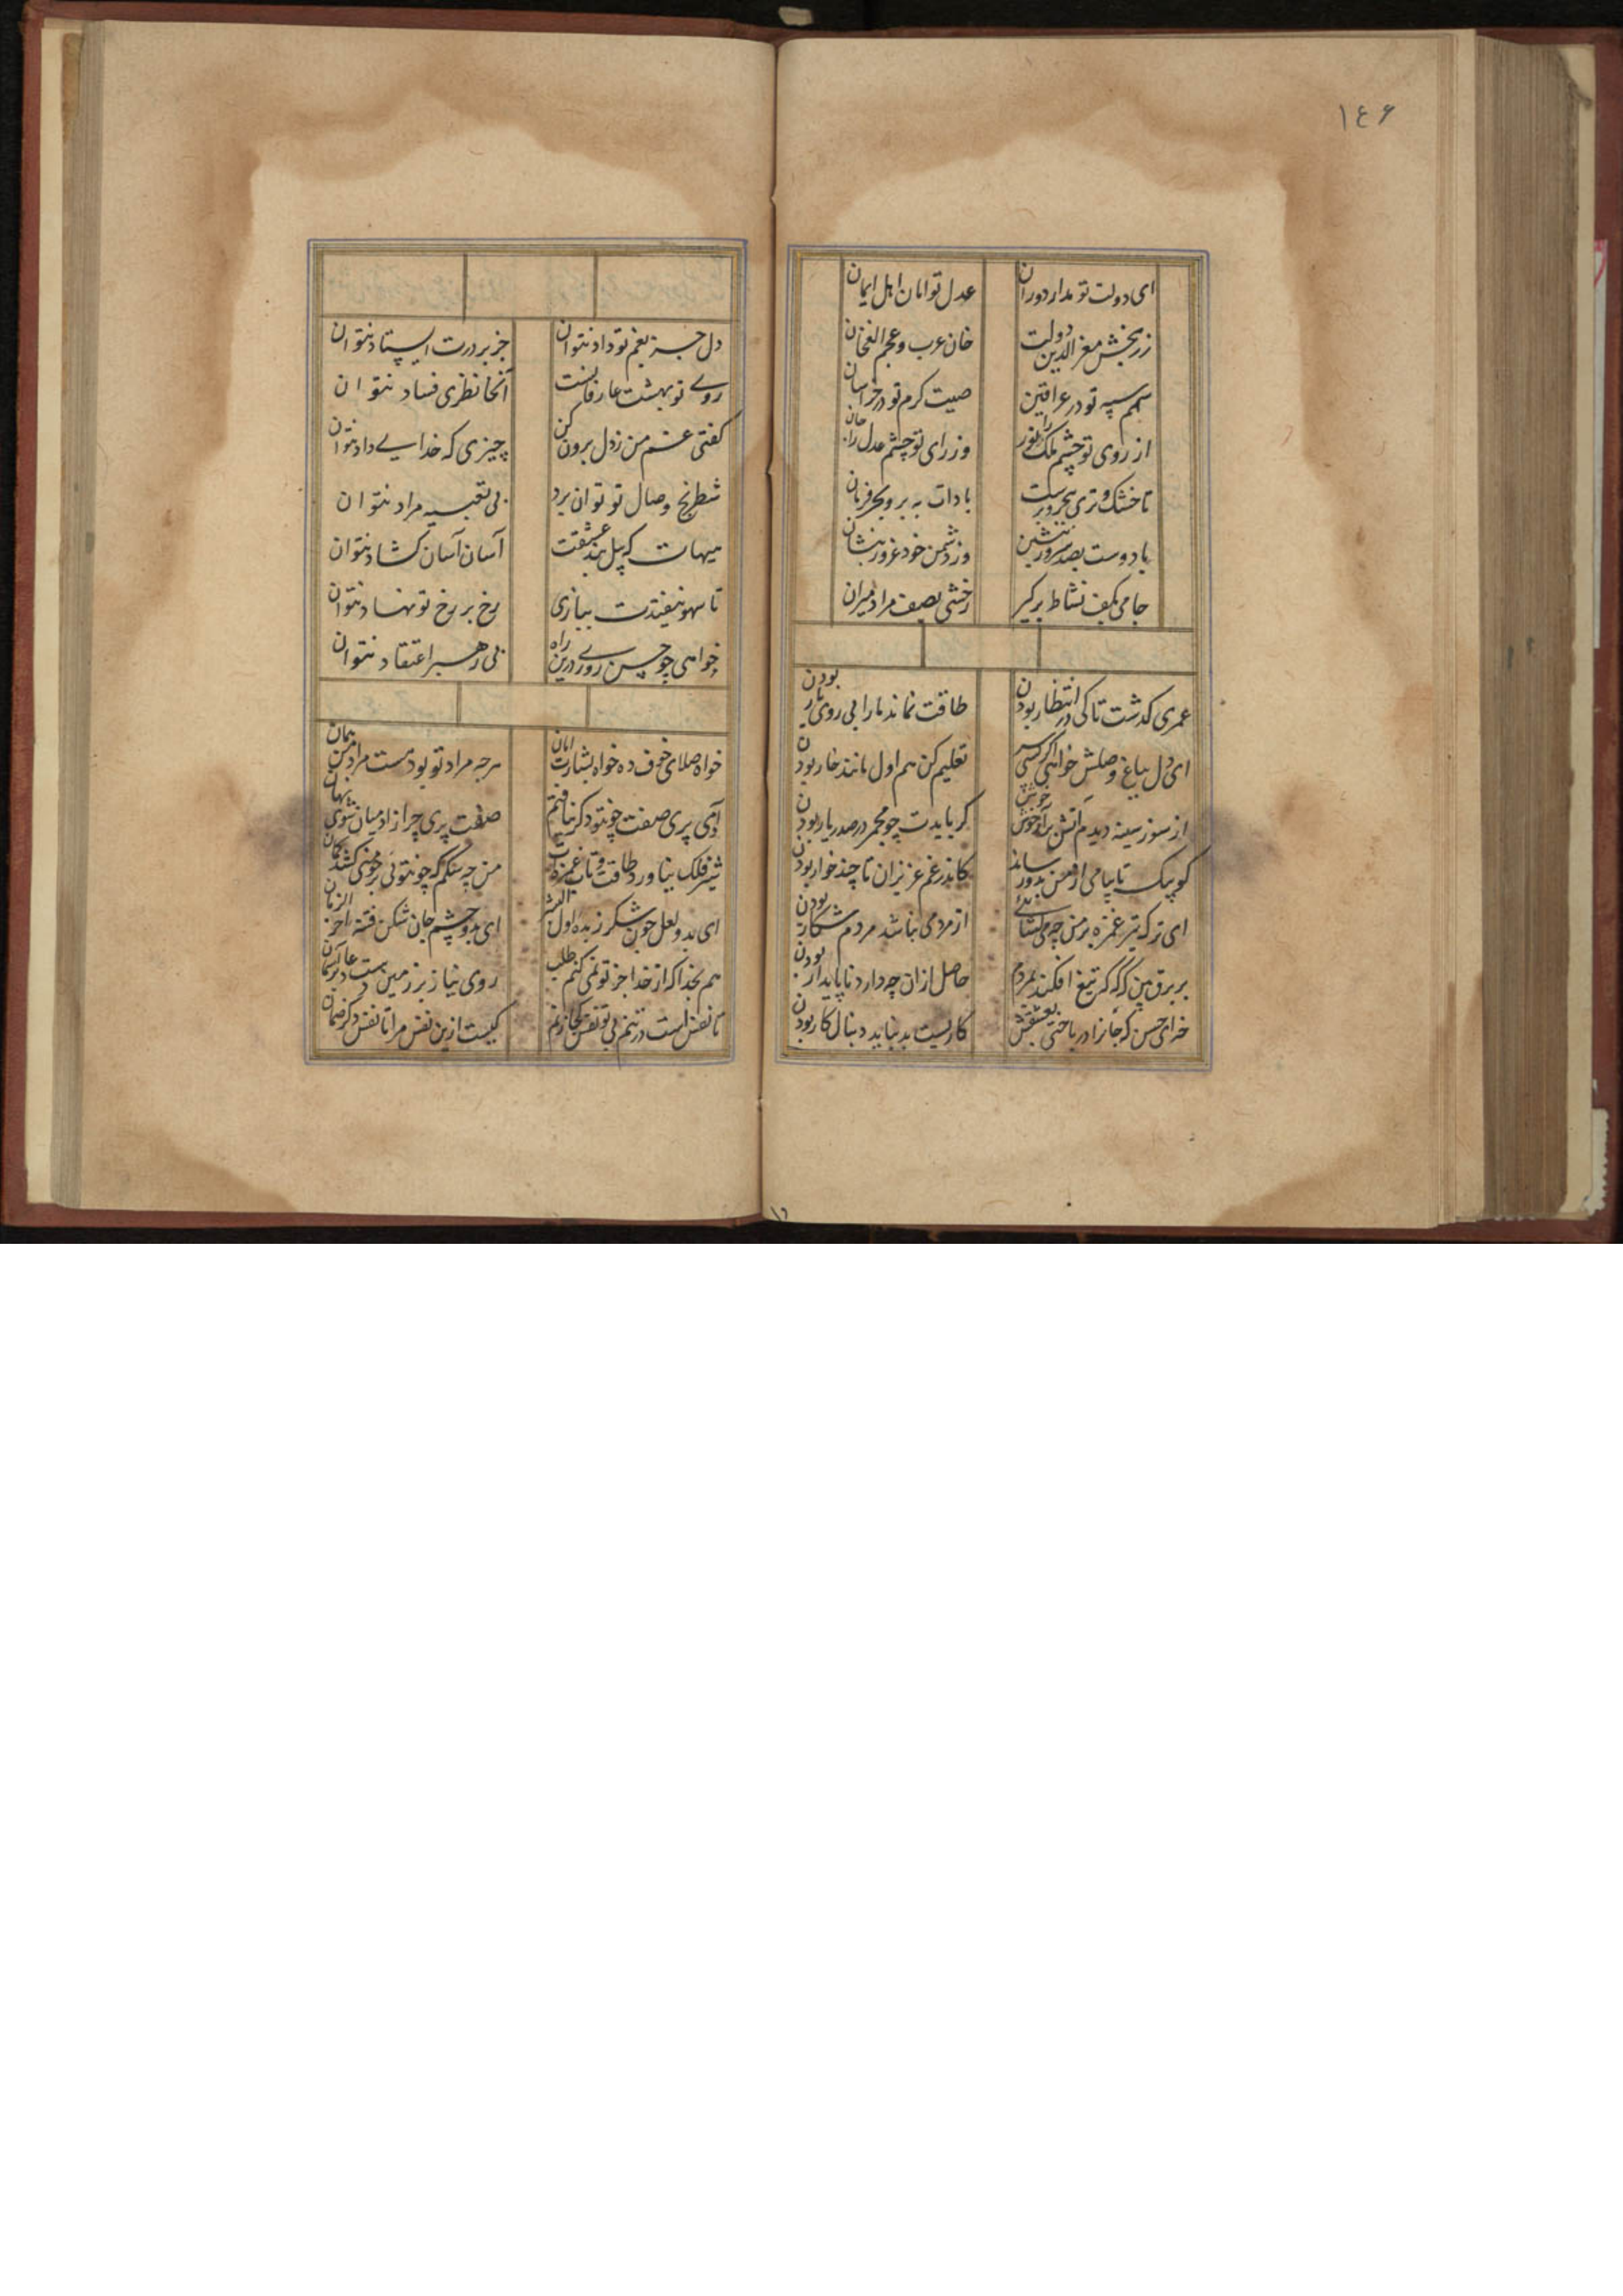 ۱٤۶
ای دولت تو مدار دوران
عدل تو امان اهل ایمان
زربخش معز الدین دولت
خان عرب و عجم الغخان
سهم سپه تو در عراقین
صیت کرم تو در خراسان
از روی تو چشم ملک را نور
وز رای تو چشم عدل را جان
تا خشک و تری ببحر و برست
بادات به بر و بحر فرمان
با دوست بصد سرور بنشین
وز دشمن خود غرور بنشان
جامی بکف نشاط برکیر
رخشی بصف مراد میران
عمری کذشت تا کی در انتظار بودن
طاقت نماند ما را بی روی یار بودن
ای دل بباغ وصلش خواهی اکر کسی
تعلیم کن هم اول مانند خار بودن
از سوز سینه دیدم آتش برآر خوش خوش
کر بایدت چو مجمر در صدر یار بودن
کو پیک تا پیامی از من بدو رساند
کاندر غم عزیزان تا چند خوار بودن
ای ترک تیر غمزه بر من چه می کشائی
از مردمی نباشد مردم شکار بودن
بر برق بین که کر تیغ افکند بمردم
حاصل ازان چه دارد ناپایدار بودن
خه ای حسن که جانرا در باختی بعشقش
کاریست بد نباید دنبال کار بودن
دل جز بغم تو داد نتوان
جز بر درت ایستاد نتوان
روی تو بهشت عارفانست
آنجا نظری فساد نتوان
کفتی غم من ز دل برون کن
چیزی که خدای داد نتوان
شطرنج وصال تو توان برد
بی تعبیه مراد نتوان
هیهات که پیل بند عشقت
آسان آسان کشاد نتوان
تا سهو نیفتدت ببازی
رخ بر رخ تو نهاد نتوان
خواهی چو حسن روی درین راه
بی رهبر اعتقاد نتوان
خواه صلای خوف ده خواه بشارت امان
هرچه مراد تو بود هست مراد من همان
آدمی پری صفت چونتو دکر نیافتم
صفت پری چرا ز آدمیان شوی نهان
شیر فلک نیاورد طاقت و تاب غمزه
من چه سکم که چونتوئی بر چو منی کشد کمان
ای بدو لعل چون شکر زبده اول البشر
ای بدو چشم جان شکن فتنه آخر الزمان
هم بخدا که از خدا جز تو نمی کنم طلب
روی نیاز بر زمین دست دعا بر آسمان
تا نفس است در تنم بی تو نفس کجا زنم
کیست ازین نفس مرا تا نفس دکر ضمان